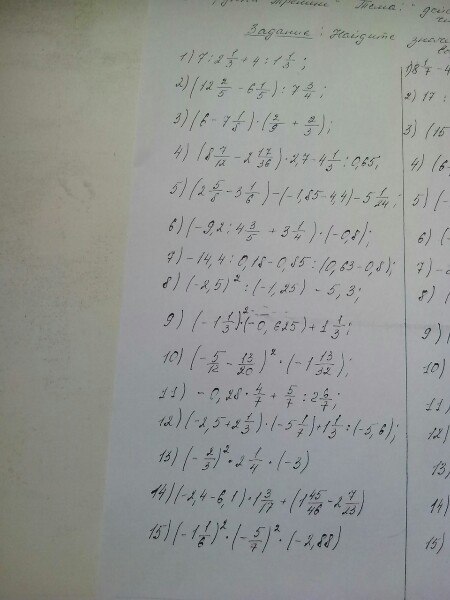 Тема: "дей
Задание: Найдите знач
1) 7 : 2 1/3 + 4 : 1 1/3 ;
2) (12 2/5 − 6 1/5) : 7 3/4 ;
3) (6 − 7 1/8) · (2/9 + 2/3) ;
4) (8 7/12 − 2 17/36) · 2,7 − 4 1/3 : 0,65 ;
5) (2 5/8 − 3 1/6) − (−1,85 − 4,4) − 5 1/24 ;
6) (−9,2 : 4 3/5 + 3 1/4) · (−0,8) ;
7) −14,4 : 0,18 − 0,85 : (0,63 − 0,8) ;
8) (−2,5)² : (−1,25) − 5,3 ;
9) (−1 1/3)² · (−0,625) + 1 1/3 ;
10) (−5/12 − 13/20)² · (−1 13/32) ;
11) −0,28 · 4/7 + 5/7 : 2 6/7 ;
12) (−2,5 + 2 1/3) · (−5 1/7) + 1 1/3 : (−5,6) ;
13) (−2/3)² · 2 1/4 · (−3)
14) (−2,4 − 6,1) · 1 3/17 + (1 45/46 − 2 7/23)
15) (−1 1/6)² · (−5/7)² · (−2,88)
1) 8 1/7 − 4
2) 17 :
3) (15
4) (6
5) (−
6) (−
7) −
8) (
9)
10)
11)
12)
13)
14)
15)